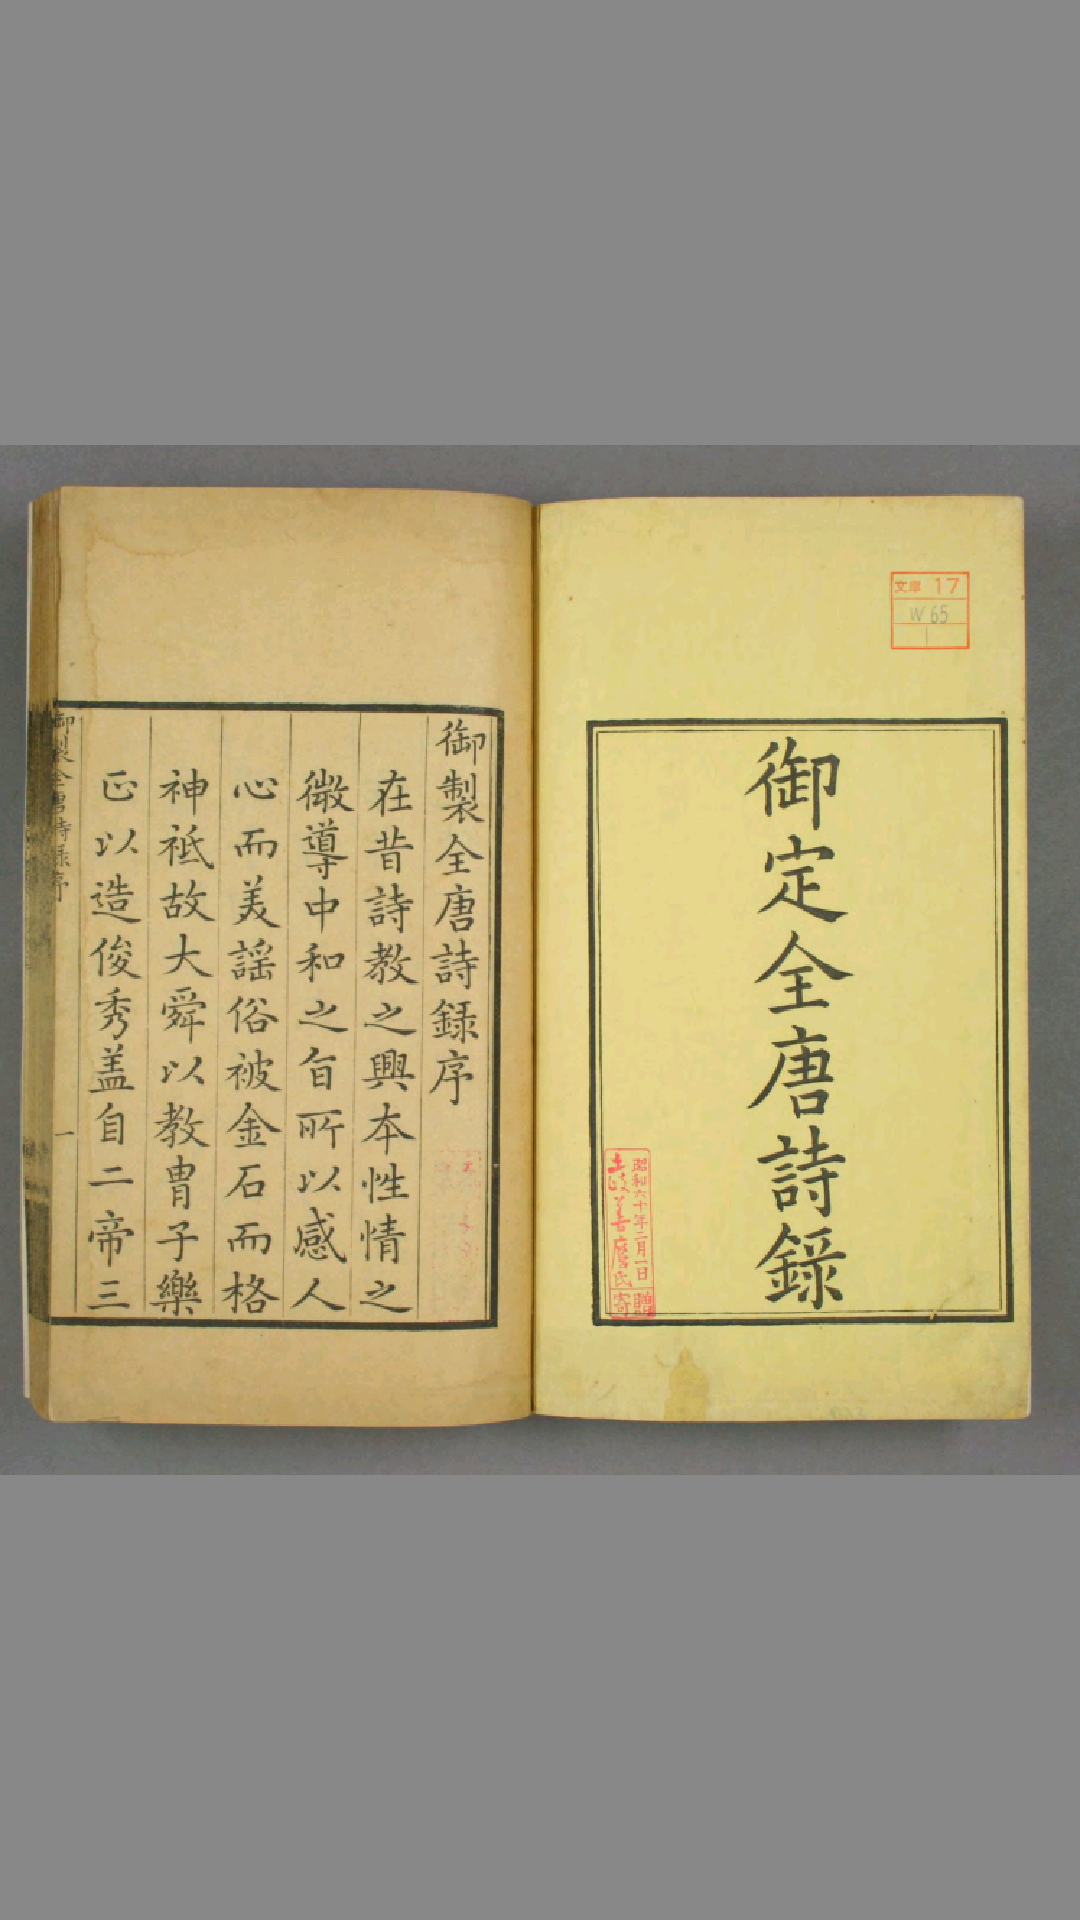 文庫 17
W 65
1
御定全唐詩錄
昭和六十年二月一日
土岐善麿氏
寄贈
御製全唐詩錄序
在昔詩教之興本性情之
微導中和之旨所以感人
心而美謡俗被金石而格
神祇故大舜以教胄子樂
正以造俊秀盖自二帝三
御製全唐詩錄序
一